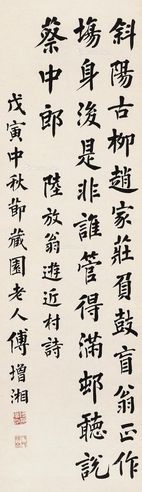 斜陽古柳趙家莊負鼓盲翁正作
塲身後是非誰管得滿邨聽說
蔡中郎 陸放翁遊近村詩
戊寅中秋節藏園老人傅增湘